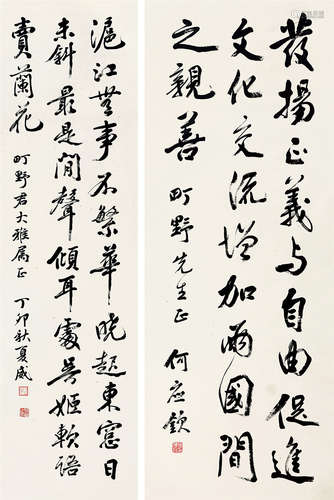 發揚正義与自由促進
文化交流增加兩國間
之親善 町野先生正 何应欽
滬江無事不繁華 晓起東窓日
未斜 最是閒聲傾耳處 吳姬軟語
賣蘭花 町野君大雅属正 丁卯秋夏威